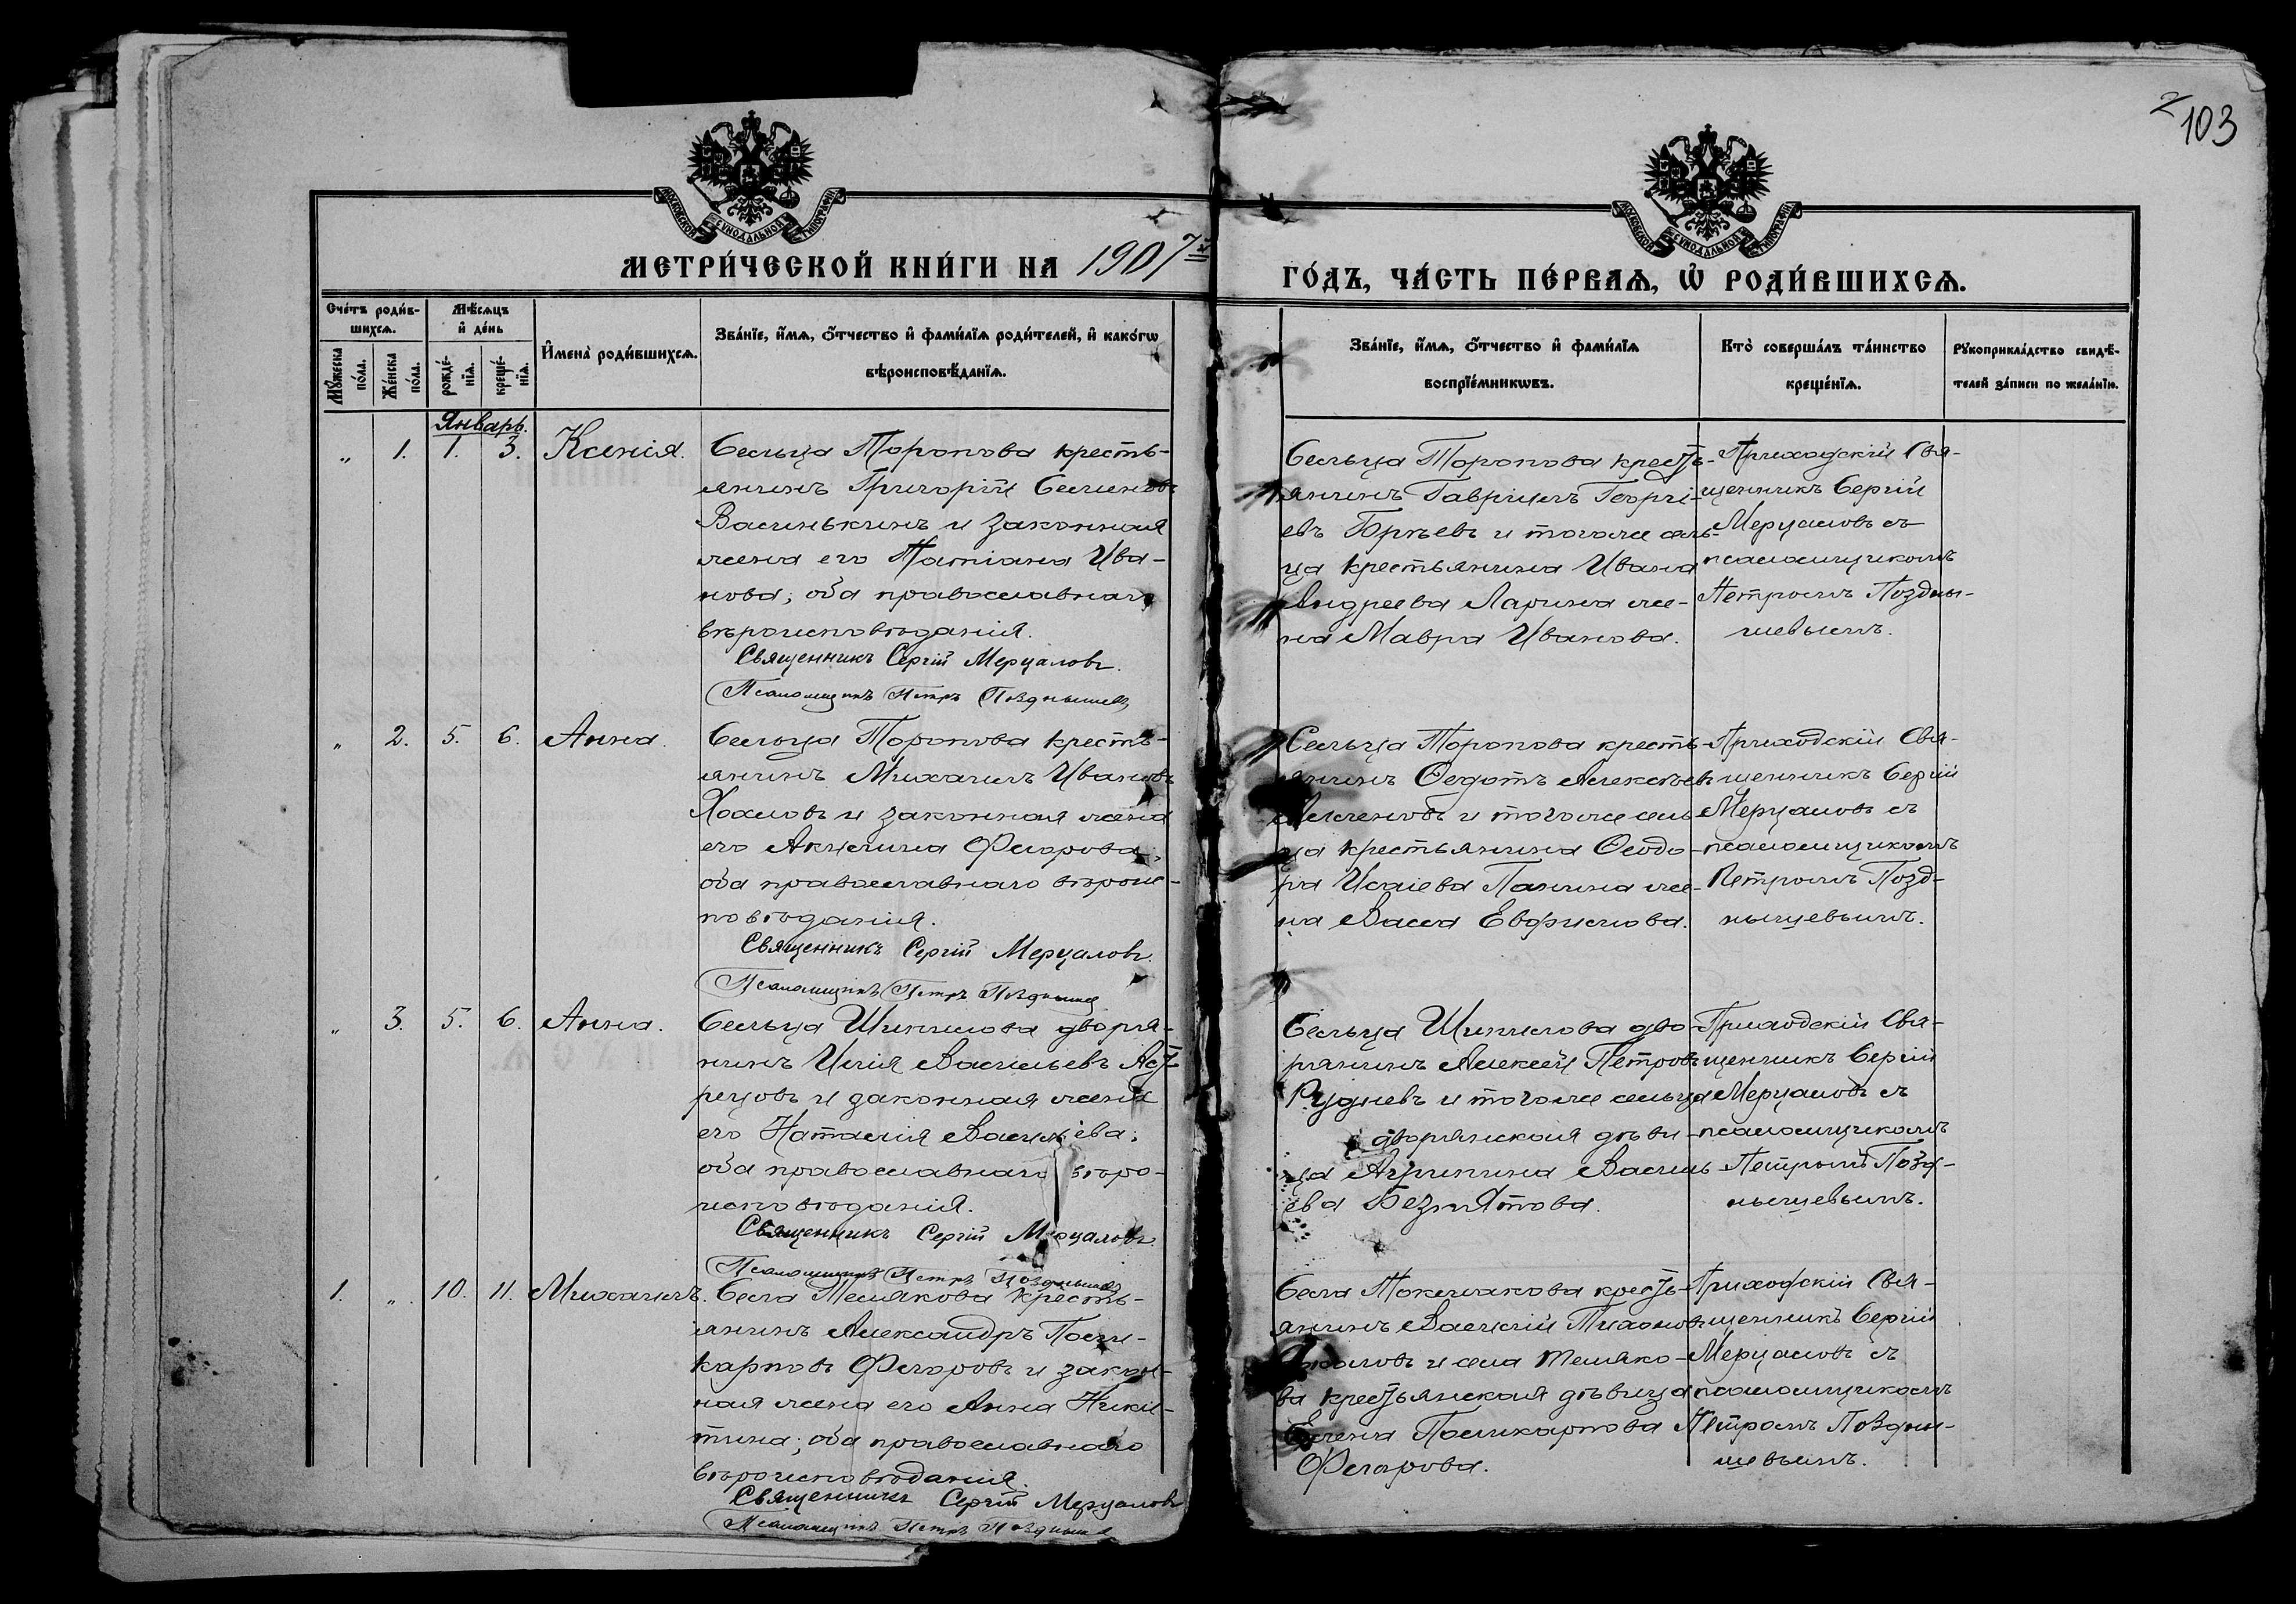 103
МОСКОВСКОЙ СУНОДАЛЬНОЙ ТИПОГРАФІИ
МОСКОВСКОЙ СУНОДАЛЬНОЙ ТИПОГРАФІИ
МЕТРИ́ЧЕСКОЙ КНИ́ГИ НА 1907й
ГО́ДЪ, ЧА́СТЬ ПЕ́РВАѦ, Ѡ҆ РОДИ́ВШИХСѦ.
Сче́тъ роди́в-
шихсѧ.
Мѣ́сѧцъ
и҆ де́нь
Мꙋ́жеска по́ла.
Же́нска по́ла.
рожде́-
нїѧ.
креще́-
нїѧ.
И҆мена̀ роди́вшихсѧ.
Зва́нїе, и҆́мѧ, ѻ҆́тчество и҆ фами́лїѧ роди́телей, и҆ како́гѡ
вѣроисповѣ́данїѧ.
Зва́нїе, и҆́мѧ, ѻ҆́тчество и҆ фами́лїѧ
воспрїе́мникѡвъ.
Кто̀ соверша́лъ та́инство
креще́нїѧ.
Рꙋкоприкла́дство свидѣ́-
телей за́писи по жела́нїю.
Январь.
„ 1. 1. 3. Ксенія.
Сельца Торопова кресть-
янинъ Григорій Семеновъ
Васинькинъ и законная
жена его Татіана Ива-
нова; оба православнаго
вѣроисповѣданія.
Священникъ Сергій Мерцаловъ.
Псаломщикъ Петръ Позднышевъ
Сельца Торопова кресть-
янинъ Гавріилъ Георгі-
евъ Горѣевъ и тогоже сель-
ца крестьянина Ивана
Андреева Ларина же-
на Мавра Иванова.
Приходскій Свя-
щенникъ Сергій
Мерцаловъ съ
псаломщикомъ
Петромъ Поздны-
шевымъ.
„ 2. 5. 6. Анна.
Сельца Торопова кресть-
янинъ Михаилъ Ивановъ
Хохловъ и законная жена
его Акилина Флорова;
оба православнаго вѣроис-
повѣданія.
Священникъ Сергій Мерцаловъ.
Псаломщикъ Петръ Позднышев
Сельца Торопова кресть-
янинъ Ѳедотъ Алексѣевъ
и тогоже сель
ца крестьянина Ѳеодо-
ра Исаіева Панина же-
на Васса Евфимова.
Приходскій Свя-
щенникъ Сергій
Мерцаловъ съ
псаломщикомъ
Петромъ Позд-
нышевымъ.
„ 3. 5. 6. Анна.
Сельца Шипилова дворя-
нинъ Илія Васильевъ Аст-
рецовъ и законная жена
его Наталія Васильева;
оба православнаго вѣро-
исповѣданія.
Священникъ Сергій Мерцаловъ.
Псаломщикъ Петръ Позднышевъ
Сельца Шипилова дво-
рянинъ Алексѣй Петровъ
Рудневъ и тогоже сельца
дворянская дѣви-
ца Агрипина Василь
ева Безпятова.
Приходскій Свя-
щенникъ Сергій
Мерцаловъ съ
псаломщикомъ
Петромъ Позд-
нышевымъ.
1. „ 10. 11. Михаилъ.
Села Телякова кресть-
янинъ Александръ Поли-
карповъ Флоровъ и закон-
ная жена его Анна Ники-
тина; оба православнаго
вѣроисповѣданія.
Священникъ Сергій Мерцаловъ
Псаломщикъ Петръ Позднышев
Села крестъ-
янинъ Василій Тихоновъ
и села Теляко-
ва крестьянская дѣвица
Елена Поликарпова
Флорова.
Приходскій Свя-
щенникъ Сергій
Мерцаловъ съ
псаломщикомъ
Петромъ Поздны-
шевымъ.